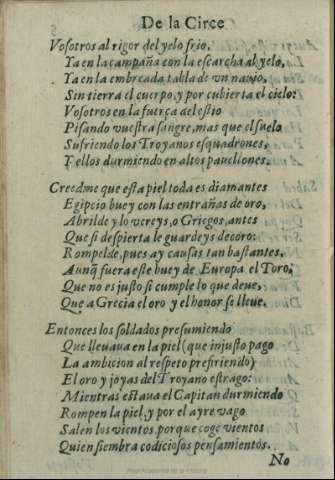 De la Circe
Vosotros al rigor del yelo frio,
Ya en la campaña con la escarcha al yelo,
Ya en la embreada tabla de vn nauio,
Sin tierra el cuerpo, y por cubierta el cielo:
Vosotros en la fuerça del estio
Pisando vuestra sangre, mas que el suelo
Sufriendo los Troyanos esquadrones,
Y ellos durmiendo en altos pauellones.
Creedme que esta piel toda es diamantes
Egipcio buey con las entrañas de oro,
Abrilde y lo vereys, o Griegos, antes
Que si despierta le guardeys decoro:
Rompelde, pues ay causas tan bastantes,
Aunq̃ fuera este buey de Europa el Toro,
Que no es justo si cumple lo que deue,
Que a Grecia el oro y el honor se lleue.
Entonces los soldados presumiendo
Que lleuaua en la piel (que injusto pago
La ambicion al respeto prefiriendo)
El oro y joyas del Troyano estrago:
Mientras estaua el Capitan durmiendo
Rompen la piel, y por el ayre vago
Salen los vientos, porque coge vientos
Quien siembra codiciosos pensamientos.
No